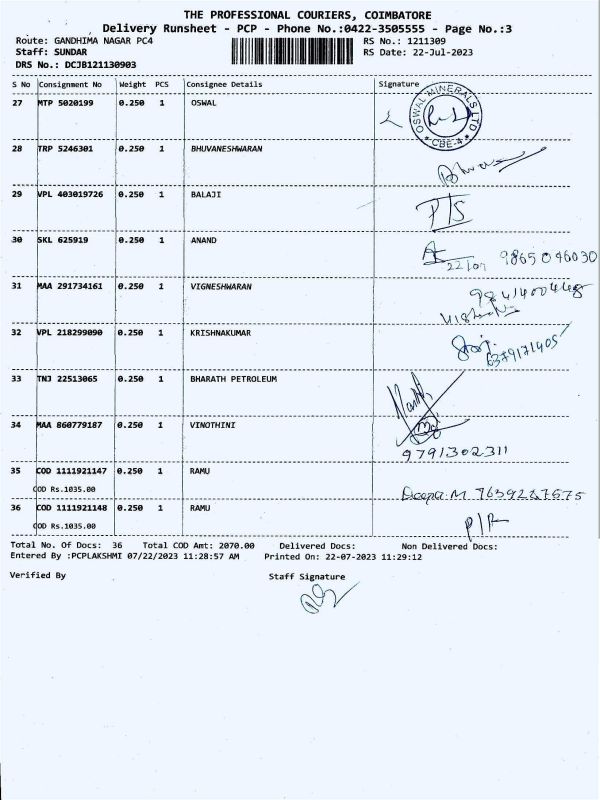 THE PROFESSIONAL COURIERS, COIMBATORE
Delivery Runsheet - PCP - Phone No.:0422-3505555 - Page No.:3
Route: GANDHIMA NAGAR PC4 RS No.: 1211309
Staff: SUNDAR RS Date: 22-Jul-2023
DRS No.: DCJB121130903
S No Consignment No Weight PCS Consignee Details Signature
27 MTP 5020199 0.250 1 OSWAL
OSWAL MINERALS LTD * CBE-4 *
28 TRP 5246301 0.250 1 BHUVANESHWARAN
29 VPL 403019726 0.250 1 BALAJI P/S
30 SKL 625919 0.250 1 ANAND
22/07 9865046030
31 MAA 291734161 0.250 1 VIGNESHWARAN
32 VPL 218299090 0.250 1 KRISHNAKUMAR
6379171405
33 TNJ 22513065 0.250 1 BHARATH PETROLEUM
34 MAA 860779187 0.250 1 VINOTHINI
9791302311
35 COD 1111921147 0.250 1 RAMU
COD Rs.1035.00 Deepa.M 7639227575
36 COD 1111921148 0.250 1 RAMU
COD Rs.1035.00 P/R
Total No. Of Docs: 36 Total COD Amt: 2070.00 Delivered Docs: Non Delivered Docs:
Entered By :PCPLAKSHMI 07/22/2023 11:28:57 AM Printed On: 22-07-2023 11:29:12
Verified By Staff Signature